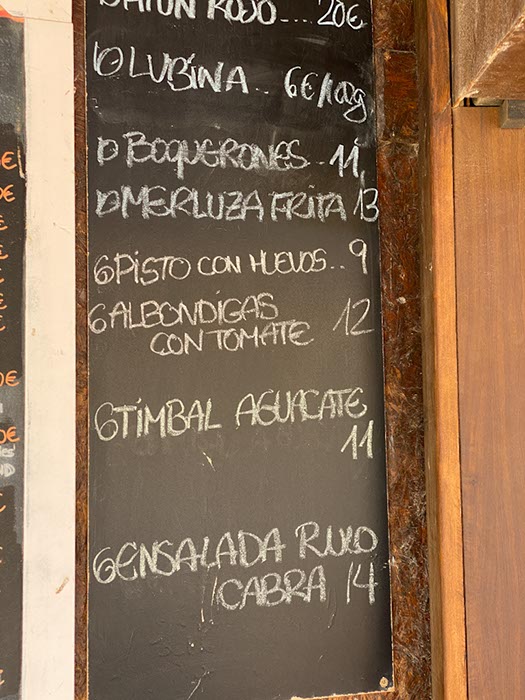 ATUN ROJO.... 20€
LUBINA.. 6€/100g
BOQUERONES.. 11,
MERLUZA FRITA 13
PISTO CON HUEVOS.. 9
ALBONDIGAS
CON TOMATE 12
TIMBAL AGUACATE
11
ENSALADA RULO
CABRA 14